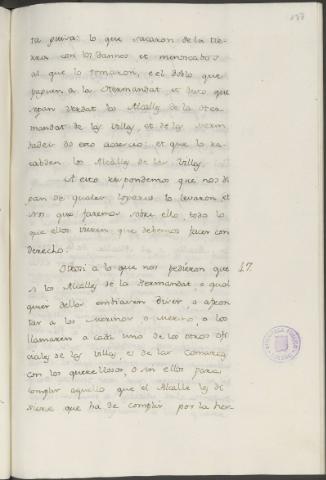 137
ta pesira: lo que sacaron de la tie-
rra con los dannos et menoscabos
al que lo tomaron, e el doblo que
pequen a la Hermandat et desto que
sepan verdat los Alcalles de la Her-
mandat de las Villas, et de las Merin-
dades do esto acaecio: et que lo re-
cabden los Alcalles de las Villas.
A esto respondemos que nos di-
gan de quales logares lo levaron et
nos que faremos sobre ello, todo lo
que ellos vieren que debemos facer con
derecho.
Otrosi a lo que nos pedieron que 17.
si los Alcalles de la Hermandat, o qual
quier dellos enbiaren decir, o afron-
tar a los Merinos o Merino, o los
llamaren a cada uno de los otros ofi-
ciales de las Villas, et de las comarcas
con los querellosos, o sin ellos para
complir aquello que el Alcalle les di-
xiere que ha de complir por la her-